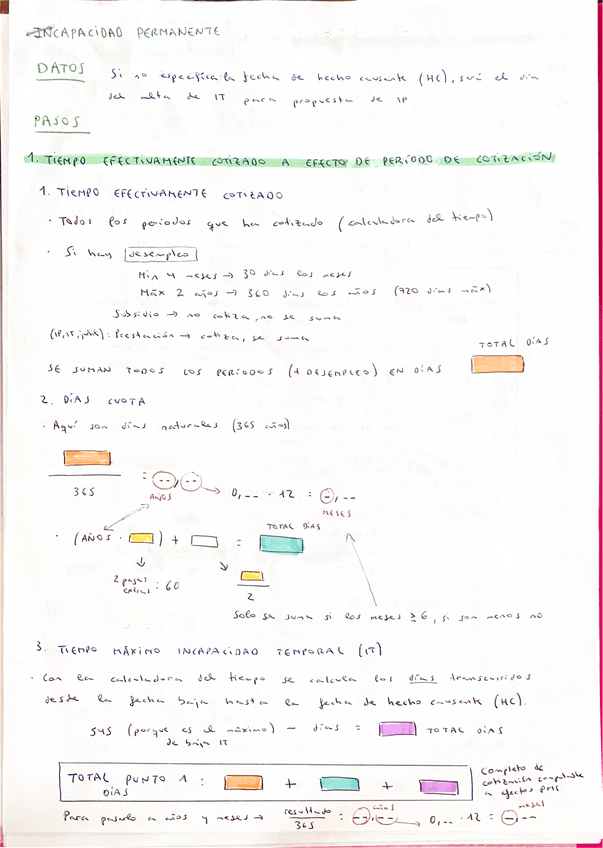 INCAPACIDAD PERMANENTE
DATOS
Si no especifica la fecha de hecho causante (HC), será el día
del alta de IT para propuesta de IP.
PASOS
1. TIEMPO EFECTIVAMENTE COTIZADO A EFECTO DE PERÍODO DE COTIZACIÓN
1. TIEMPO EFECTIVAMENTE COTIZADO
· Todos los periodos que ha cotizado (calculadora del tiempo)
· Si hay desempleo
Min 4 meses → 30 días los meses
Máx 2 años → 360 días los años (720 días máx)
Subsidio → no cotiza, no se suma
Prestación → cotiza, se suma
TOTAL DÍAS
SE SUMAN TODOS LOS PERÍODOS (+ DESEMPLEO) EN DÍAS
2. DÍAS CUOTA
· Aquí son días naturales (365 años)
365
= --,-- → 0,-- · 12 = -,--
AÑOS
MESES
TOTAL DÍAS
· (AÑOS · ) + =
2 pagas extras : 60
2
Solo se suma si los meses ≥ 6, si son menos no.
3. TIEMPO MÁXIMO INCAPACIDAD TEMPORAL (IT)
· Con la calculadora del tiempo se calcula los días transcurridos
desde la fecha baja hasta la fecha de hecho causante (HC).
545 (porque es el máximo) - días = TOTAL DÍAS
de baja IT
TOTAL PUNTO 1 : + +
DÍAS
Completo de
cotización
a efectos
Para pasarlo a años y meses → resultado = --,-- → 0,-- · 12 = -,--
365
años
meses